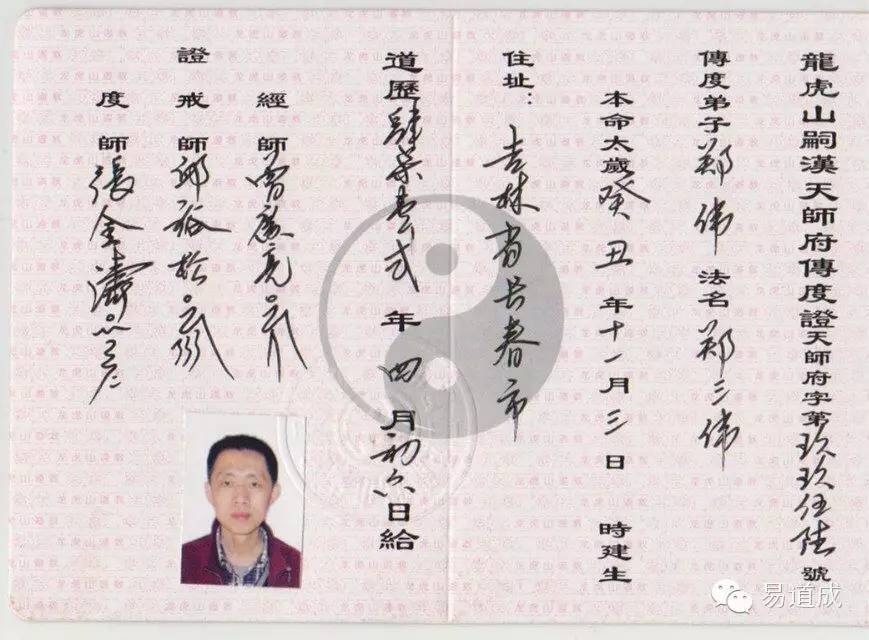 龍虎山嗣漢天師府傳度證天師府字第玖玖伍陸號
傳度弟子郑偉法名郑三偉
本命太歲癸丑年十一月三日 時建生
住址：吉林省长春市
道歷肆柒壹弍年四月初 日給
經師曾廣亮
證戒師邱裕松
度師張金濤
易道成